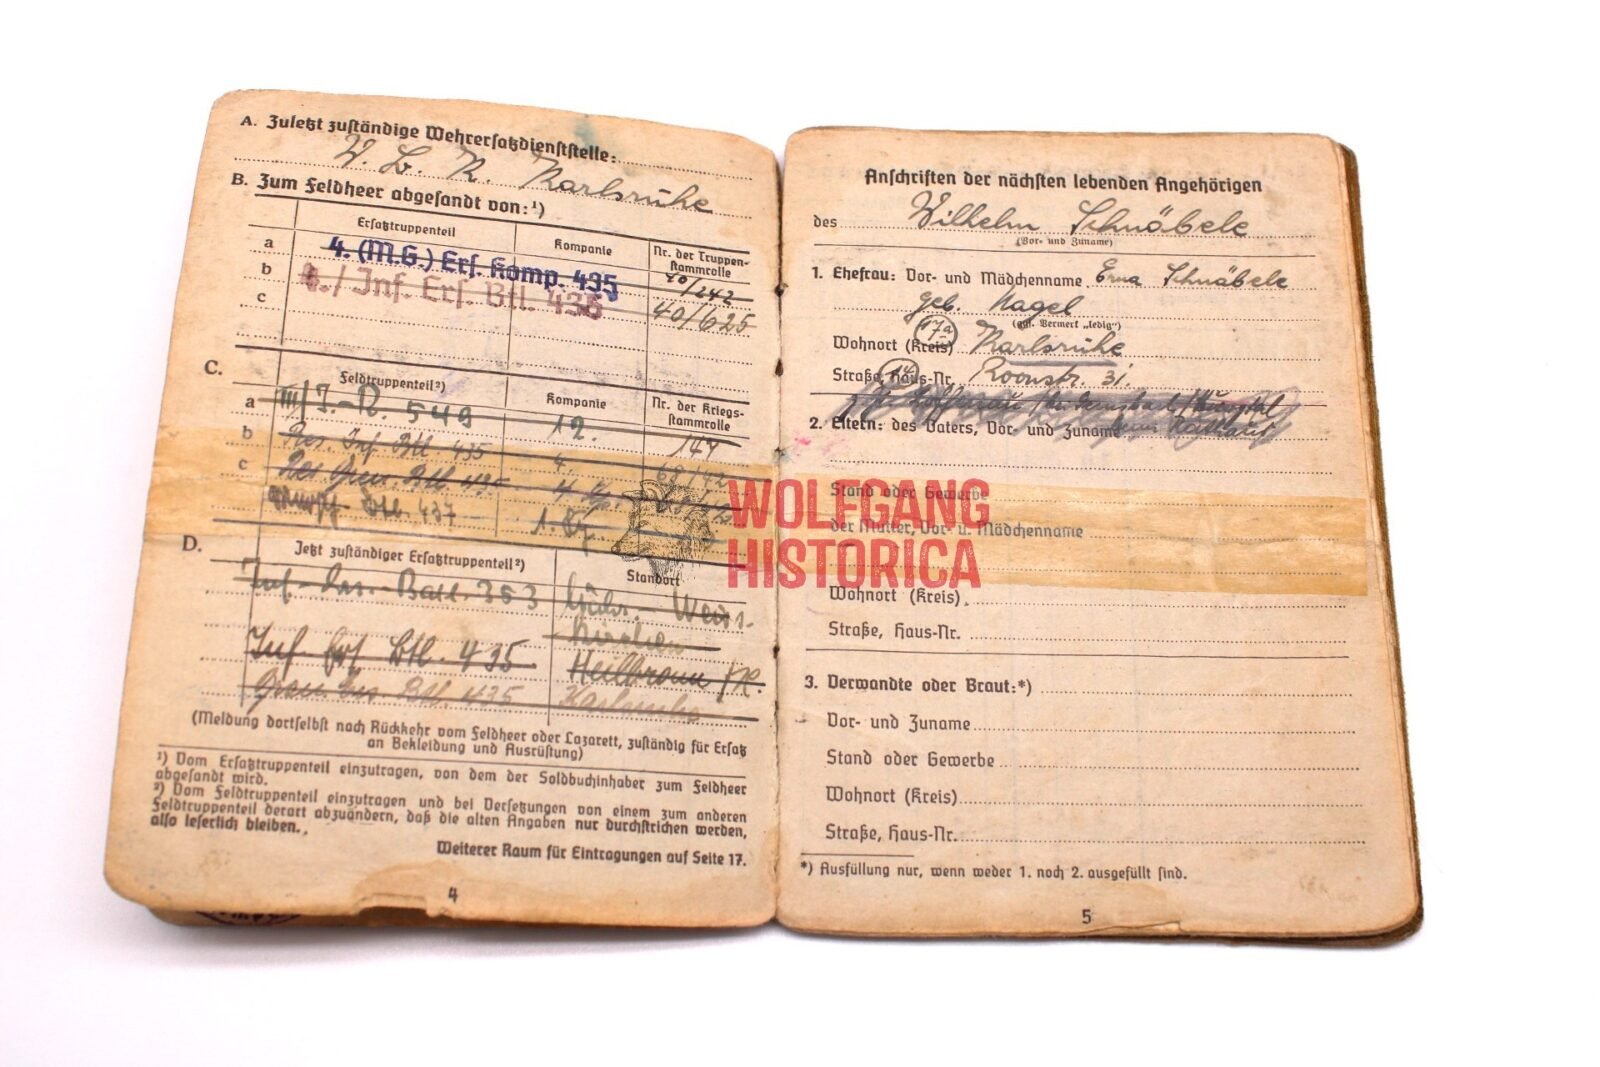 A. Zuletzt zuständige Wehrersatzdienststelle:
W. B. K. Karlsruhe
B. Zum Feldheer abgesandt von:¹)
Ersatztruppenteil Kompanie Nr. der Truppen-
stammrolle
a 4. (M.G.) Ers. Komp. 435 40/242
b 4./ Inf. Ers. Btl. 435 40/625
c
C.
Feldtruppenteil²) Kompanie Nr. der Kriegs-
stammrolle
a III/J.-R. 549 12. 147
b Res. Inf. Btl. 435 4.
c Res. Gren. Btl. 435 4.
Btl. 437 1.
D. Jetzt zuständiger Ersatztruppenteil²) Standort
Inf. Ers. Batl. 353
Inf. Ers. Btl. 435 Heilbronn /N.
Gren. Ers. Btl. 435 Karlsruhe
(Meldung dortselbst nach Rückkehr vom Feldheer oder Lazarett, zuständig für Ersatz
an Bekleidung und Ausrüstung)
¹) Vom Ersatztruppenteil einzutragen, von dem der Soldbuchinhaber zum Feldheer
abgesandt wird.
²) Vom Feldtruppenteil einzutragen und bei Versetzungen von einem zum anderen
Feldtruppenteil derart abzuändern, daß die alten Angaben nur durchstrichen werden,
also leserlich bleiben.
Weiterer Raum für Eintragungen auf Seite 17.
4
Anschriften der nächsten lebenden Angehörigen
des Wilhelm Schnäbele
(Vor- und Zuname)
1. Ehefrau: Vor- und Mädchenname Erna Schnäbele
geb. Nagel
(ggf. Vermerk „ledig“)
Wohnort (Kreis) (17a) Karlsruhe
Straße, Haus-Nr. Roonstr. 31.
2. Eltern: des Vaters, Vor- und Zuname
Stand oder Gewerbe
der Mutter, Vor- u. Mädchenname
Wohnort (Kreis)
Straße, Haus-Nr.
3. Verwandte oder Braut:*)
Vor- und Zuname
Stand oder Gewerbe
Wohnort (Kreis)
Straße, Haus-Nr.
*) Ausfüllung nur, wenn weder 1. noch 2. ausgefüllt sind.
5
WOLFGANG
HISTORICA